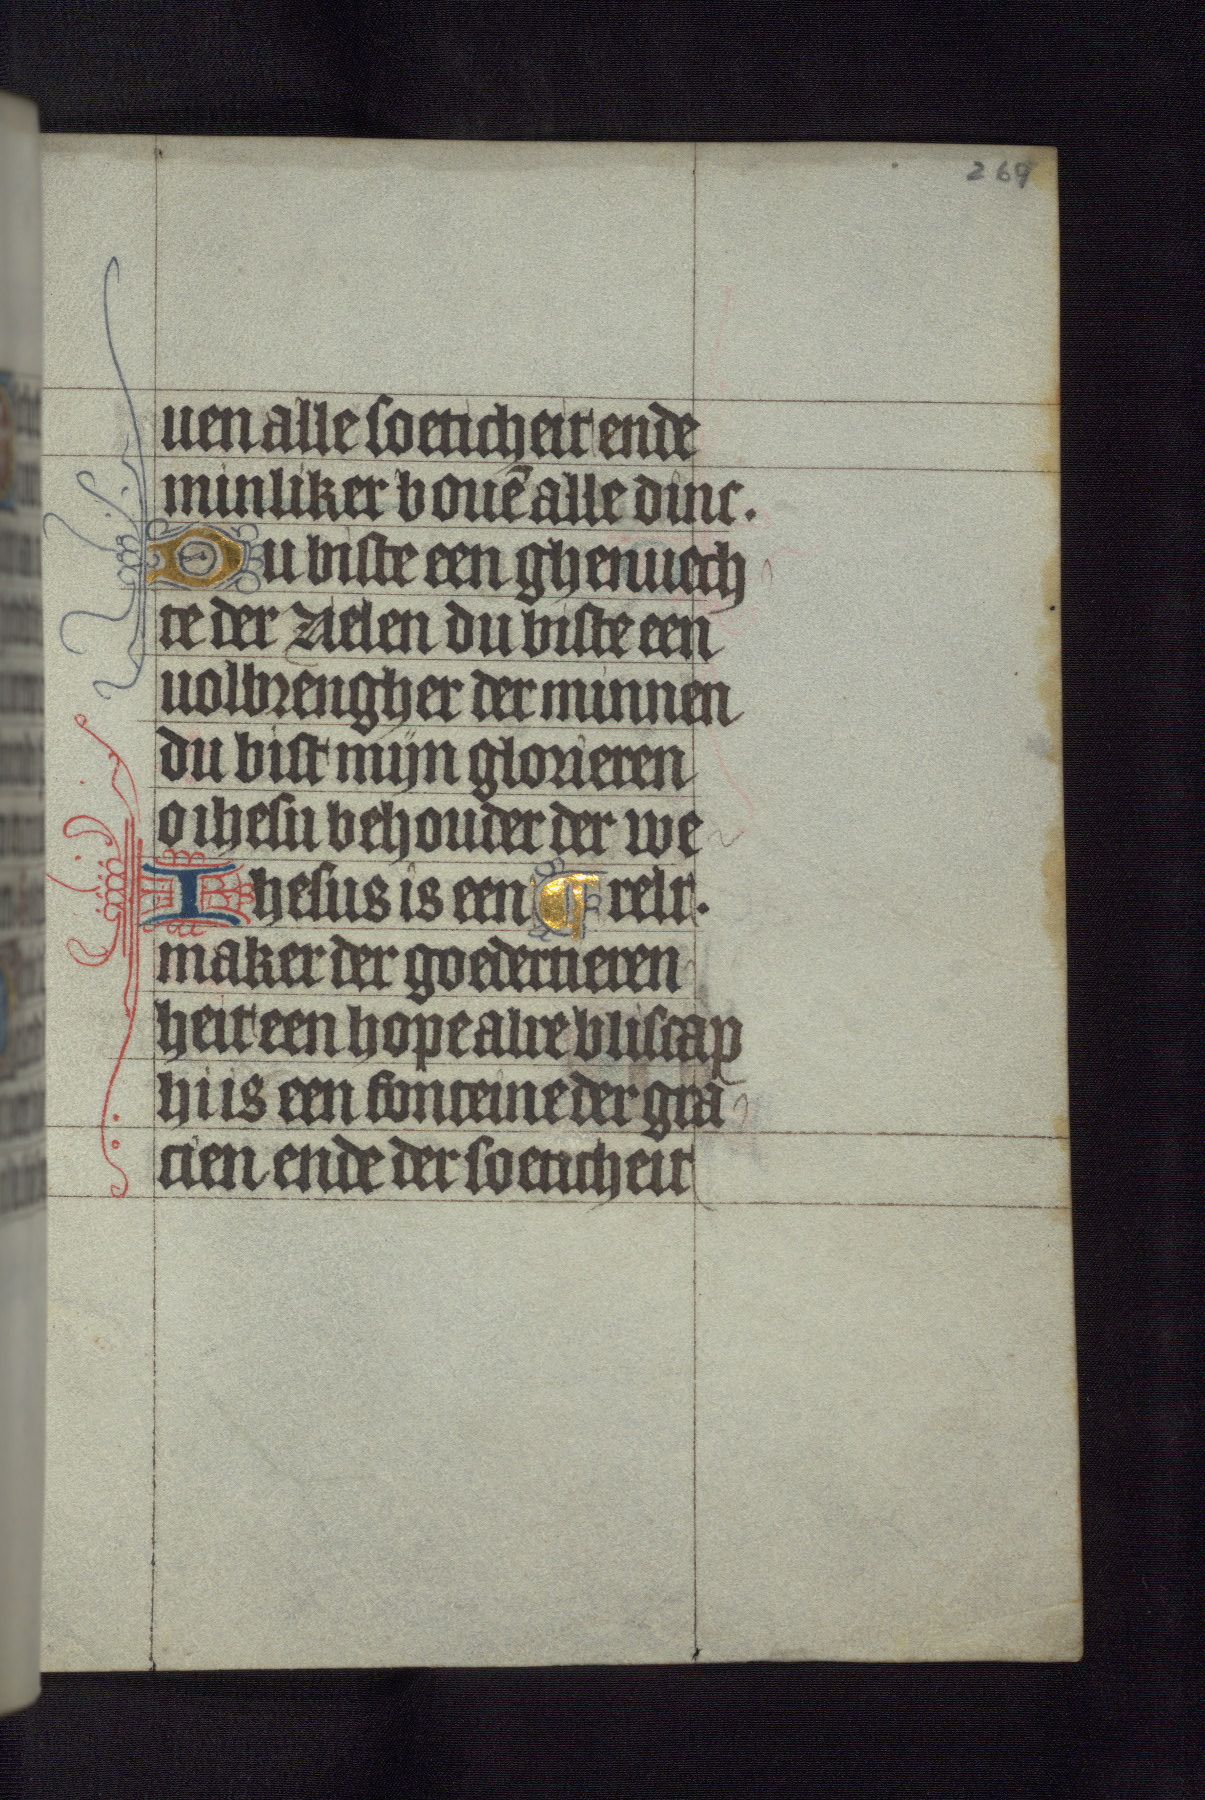 269
uen alle soeticheit ende
minliker bouē alle dinc.
Du biste een ghenuech
te der zielen du biste een
uolbrengher der minnen
du bist mijn glorieren
o ihesu behouder der we
Ihesus is een ¶ relt.
maker der goedertieren
heit een hope alre bliscap
hi is een fonteine der gra
cien ende der soeticheit